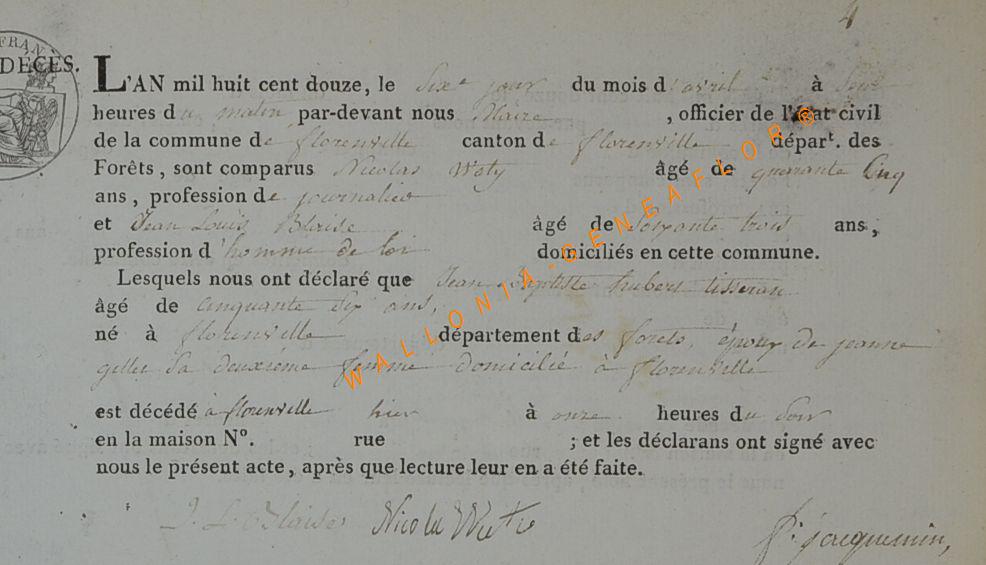 4
FRAN
DÉCÈS.
L'AN mil huit cent douze, le Sixe jour du mois d'avril à Sept
heures du matin par-devant nous Maire, officier de l'état civil
de la commune de florenville canton de florenville départ. des
Forêts, sont comparus Nicolas Woty âgé de quarante Cinq
ans, profession de journalier
et Jean Louis Blaise âgé de Soixante trois ans,
profession d'homme de loi domiciliés en cette commune.
Lesquels nous ont déclaré que Jean Baptiste hubert tisseran
âgé de cinquante six ans,
né à florenville département des forets, époux de jeanne
gilles Sa deuxiéme femme domicilié à florenville
est décédé à florenville hier à onze heures du Soir
en la maison N°. rue ; et les déclarans ont signé avec
nous le présent acte, après que lecture leur en a été faite.
J. L. Blaise Nicolas jacquemin,
WALLONIA-GENEAFLOR©